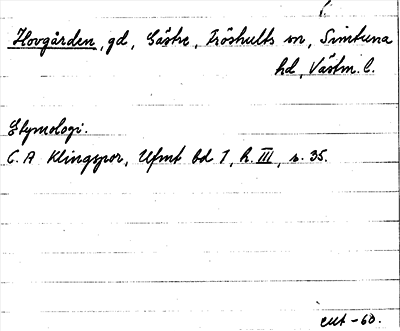 Hovgården, gd, Gästre, Fröshults sn, Simtuna
hd, Västm. l.
Etymologi.
C. A Klingspor, Ufmt bd I, h. III, s. 35.
-60.